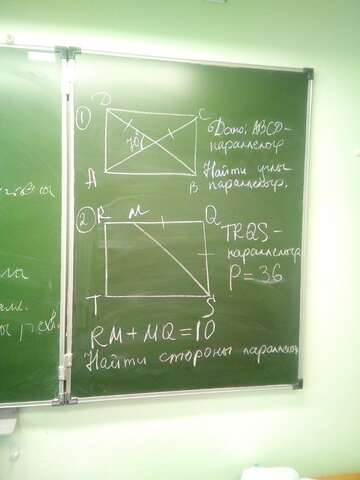 ①
D
C
70°
A
B
Дано: ABCD-
параллелогр
Найти углы
параллелогр.
②
R M Q
T S
TRQS-
параллелогр
P=36
RM+MQ=10
Найти стороны параллелог
ла